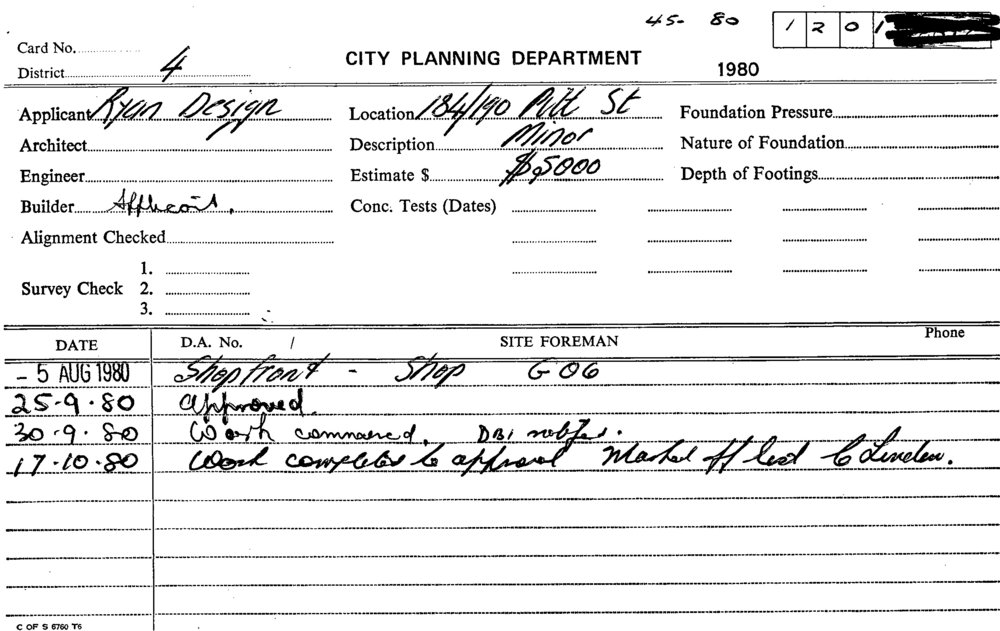 45- 80 1 2 0 1
Card No.
CITY PLANNING DEPARTMENT
District 4 1980
Applicant Ryan Design Location 184/190 Pitt St Foundation Pressure
Architect Description Minor Nature of Foundation
Engineer Estimate $ $5000 Depth of Footings
Builder Applicant. Conc. Tests (Dates)
Alignment Checked
1.
Survey Check 2.
3.
DATE D.A. No. / SITE FOREMAN Phone
- 5 AUG 1980 Shopfront - Shop G06
25-9-80 Approved.
30-9-80 Work commenced. DBI
17-10-80 Work completed to approval Marked off C Linden.
C OF S 6760 T6